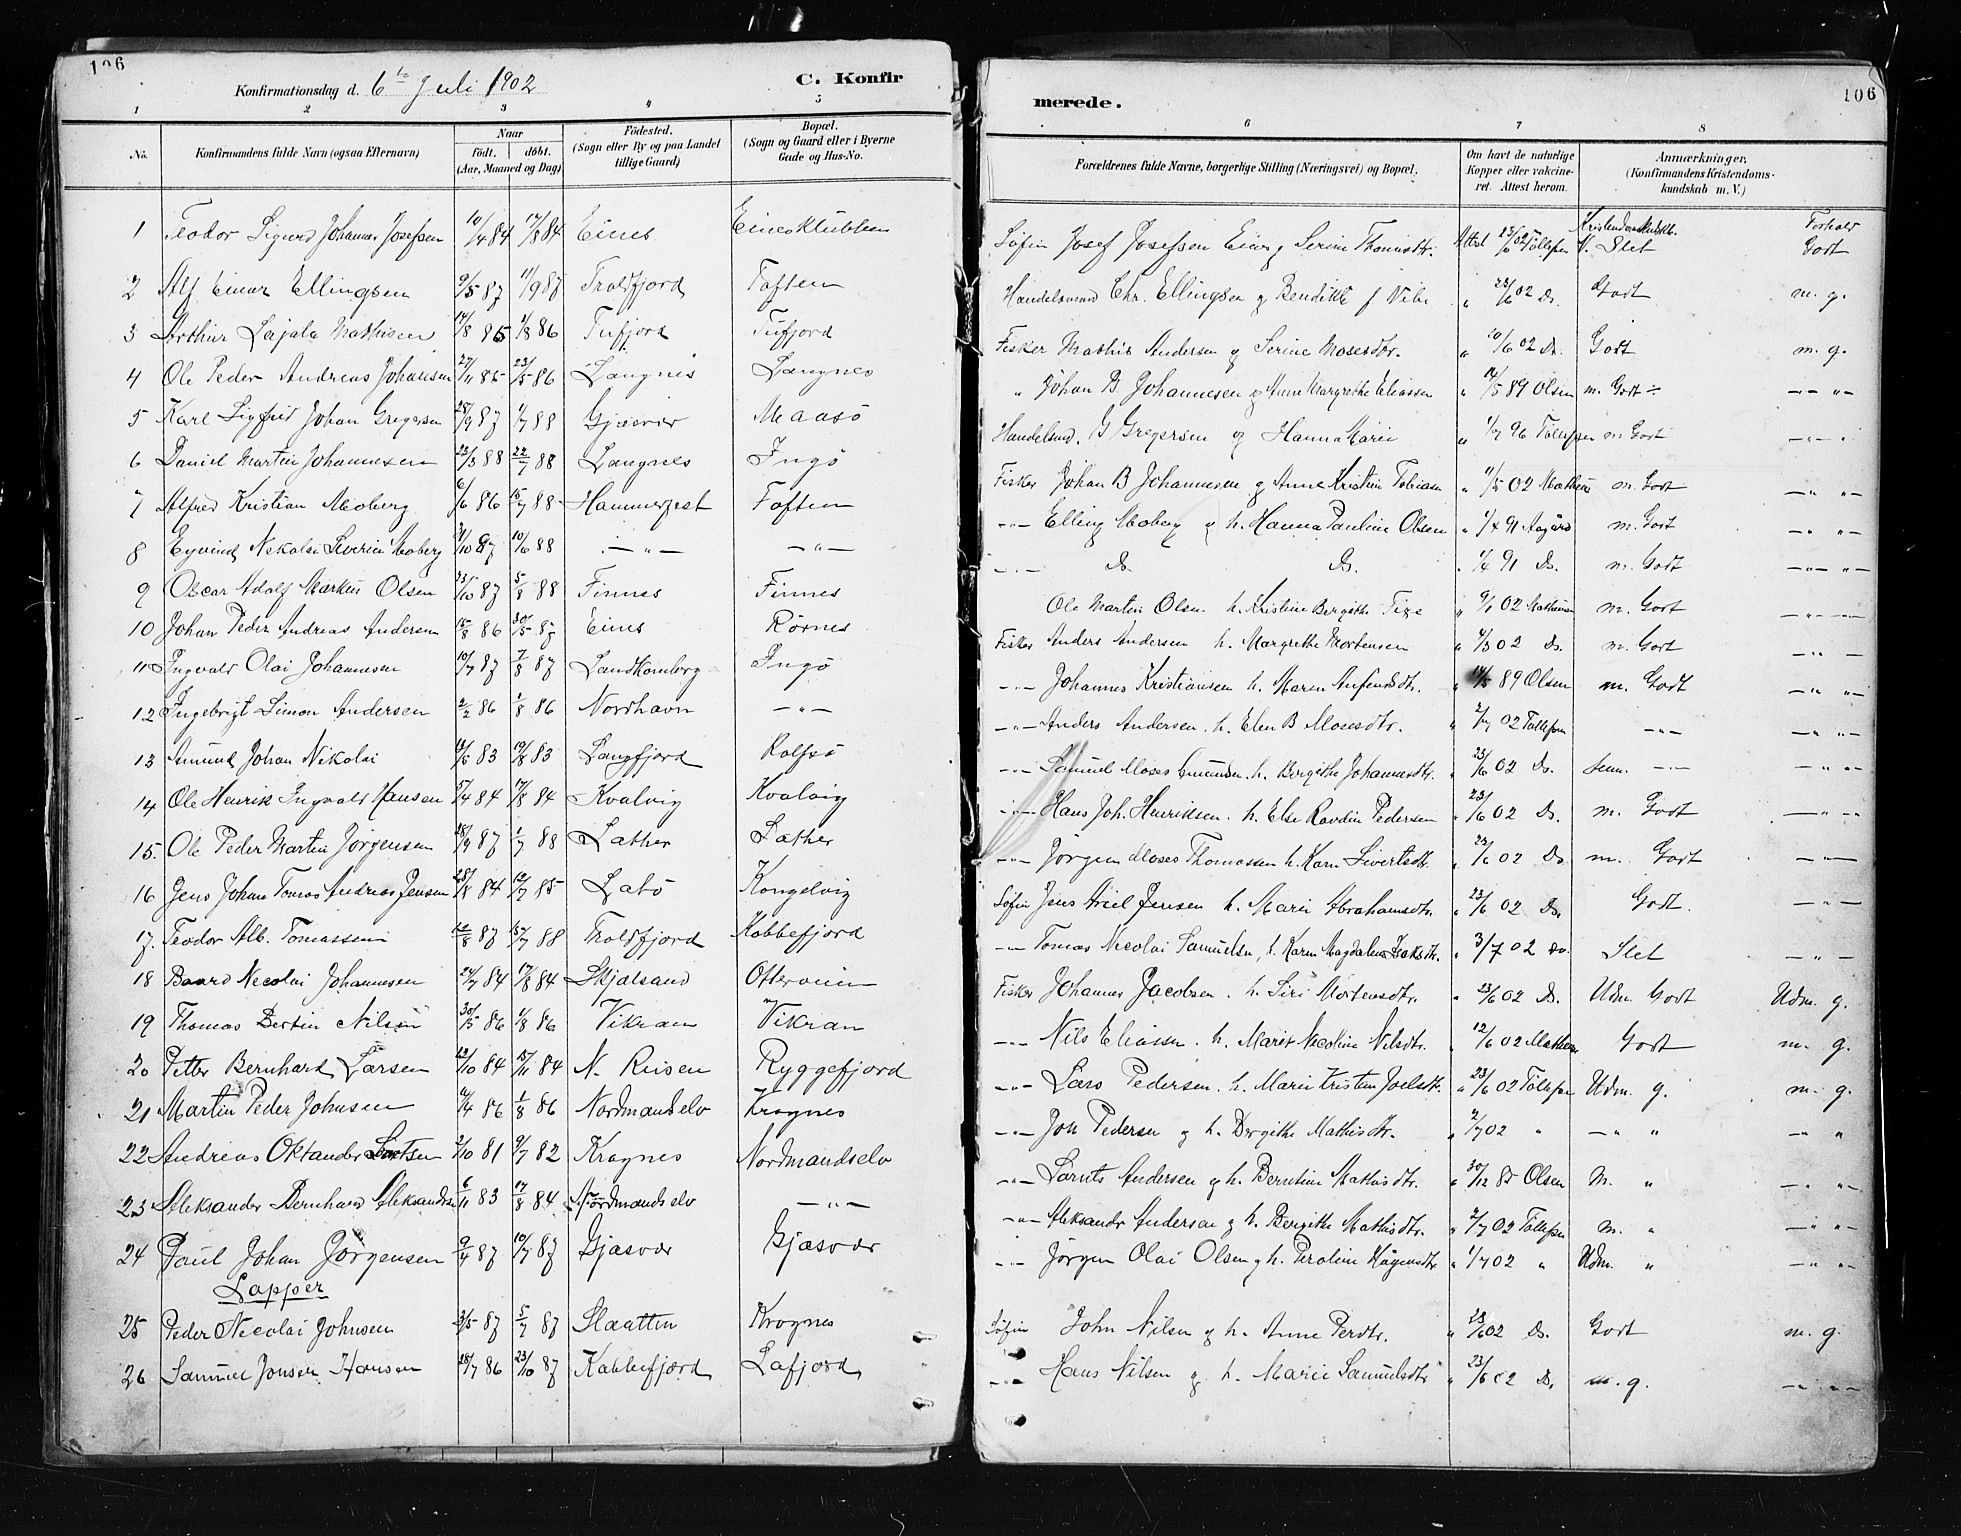 106
Konfirmationsdag d. 6te Juli 1902
C. Konfir
1 2 3 4 5
No.
Konfirmandens fulde Navn (ogsaa Efternavn)
Naar
födt. döbt.
(Aar, Maaned og Dag)
Födested.
(Sogn eller By og paa Landet
tillige Gaard)
Bopæl.
(Sogn og Gaard eller i Byerne
Gade og Hus-No.
1 Teodor Sigurd Johannes Josefsen 10/4 84 17/8 84 Eines Einesklubben
2 Alf Einar Ellingsen 9/5 87 11/9 87 Troldfjord Toften
3 Arthur Lajala Mathisen 14/8 85 1/8 86 Tufjord Tufjord
4 Ole Peder Andreas Johansen 27/11 85 23/5 86 Langnes Langnes
5 Karl Sigfrid Johan Gregersen 28/9 87 1/7 88 Gjæsvær Maasö
6 Daniel Martin Johannesen 23/3 88 22/7 88 Langnes Ingö
7 Alfred Kristian Moberg 6/6 86 15/7 88 Hammerfest Toften
8 Eyvind Nikolai Severin Moberg 9/10 87 10/6 88 —〃— —〃—
9 Oscar Adolf Markus Olsen 23/10 87 5/8 88 Finnes Finnes
10 Johan Peder Andreas Andersen 15/8 86 30/5 87 Eines Rörnes
11 Ingvald Olai Johannesen 10/7 87 7/8 87 Sandhamberg Ingö
12 Ingebrigt Simon Andersen 2/2 86 1/8 86 Nordhavn —〃—
13 Amund Johan Nikolai 83 19/8 83 Langfjord Rolfsö
14 Ole Henrik Ingvald Hansen 5/4 84 17/8 84 Kvalvig Kvalvig
15. Ole Peder Martin Jörgensen 28/9 87 1/7 88 Lather Lather
16 Jens Johan Tomas Andreas Jensen 28/8 84 12/7 85 Latö Kongelvig
17. Teodor Alb. Tomassen 12/8 87 15/7 88 Troldfjord Kobbefjord
18 Baard Necolai Johannesen 24/7 84 17/8 84 Skjalsand Otterveien
19 Thomas Bertin Nilsen 30/5 86 1/8 86 Vikran Vikran
20 Petter Bernhard Larsen 12/10 84 15/11 84 N. Reisen Ryggefjord
21 Martin Peder Johnsen 11/4 86 1/8 86 Nordmandselv Krognes
22 Andreas Oktander 2/10 81 9/7 82 Krognes Nordmandselv
23 Aleksander Bernhard Aleksandersen 6/11 83 17/8 84 Nordmandselv —〃—
24 Paul Johan Jörgensen 9/4 87 10/7 87 Gjæsvær Gjæsvær
Lapper
25 Peder Necolai Johnsen 3/5 87 5/7 87 Slaatten Krognes
26 Samuel Jonsen Hansen 28/7 86 23/10 87 Kobbefjord Lafjord
merede.
106
6 7 8
Forældrenes fulde Navne, borgerlige Stilling (Næringsvei) og Bopæl.
Om havt de naturlige
Kopper eller vakcine-
ret. Attest herom.
Anmærkninger,
(Konfirmandens Kristendoms-
kundskab m. V.)
Kristendomskundsk. Forhold
Söfin Josef Josefsen Eines og Serine Thomasdtr. Attest 23/6 02 Tollefsen M. Slet Godt
Handelsmand Chr. Ellingsen og Bendikte f. Vibe 〃 23/6 02 Do. Godt m. g.
Fisker Mathis Andersen og Serine Mosesdtr. 〃 10/6 02 Do. Godt m. g.
〃 Johan B Johannesen og Anne Margrethe Eliassen 〃 14/5 89 Olsen m. Godt ÷ —〃— 〃—
Handelsmd. G Gregersen og Hanna Marie 〃 1/7 96 Tollefsen m. Godt —〃—
Fisker Johan B Johannesen og Anne Kristine Tobiasen 〃 11/5 02 Mathisen m. Godt —〃 〃—
—〃— Elling Moberg og h. Hanna Pauline Olsen 〃 1/4 91 Aagård m. Godt —〃 〃—
—〃— Do. Do. 〃 1/4 91 Do. m. Godt —〃— 〃—
Ole Martin Olsen h. Kristine Bergithe 〃 9/1 02 Mathisen m. Godt —〃—
Fisker Anders Andersen h. Margrethe Mortensen 〃 4/3 02 Do. m. Godt —〃—
—〃— Johannes Kristiansen h. Maren Anfindsdtr. 〃 89 Olsen m. Godt —〃 〃—
—〃— Anders Andersen. h. Elen B Mosesdtr. 〃 2/7 02 Tollefsen —〃— —〃 〃—
—〃— Samuel Moses Amundsen h. Bergithe Johannesdtr. 〃 23/6 02 Do. —〃— —〃 〃—
—〃— Hans Joh. Henriksen. h. Else Ravdin Pedersen 〃 23/6 02 Do. m. Godt —〃 〃—
—〃— Jörgen Moses Thomassen h. Karn Sivertsdtr. 〃 23/6 02 Do. m. Godt —〃—
Söfin Jens Ariel Jensen h. Marie Abrahamsdtr. 〃 23/6 02 Do. Godt. —〃—
—〃— Tomas Nicolai Samuelsen, h. Karen Magdalena Isaksdtr. 〃 3/7 02 Do. Slet —〃—
Fisker Johannes Jacobsen. h. Siri Mortensdtr. 〃 23/6 02 Do. Udm. Godt Udm. g.
—〃— Nils Eliassen. h. Maret Nicoline Nilsdtr. 〃 12/6 02 Mathisen Godt m. g.
—〃— Lars Pedersen. h. Marie Kristine Joelsdtr. 〃 23/6 02 Tollefsen Udm. g. m. g.
—〃— Jon Pedersen og h. Bergithe Mathisdtr. 〃 2/7 02 〃 —〃 〃 〃 〃
—〃— Andersen og h. Berntine Mathisdtr. 〃 30/12 85 Olsen M. 〃 —〃 〃—
—〃— Aleksander Andersen og h. Bergithe Mathisdtr. 〃 2/7 02 Tollefsen m. 〃 —〃 〃—
—〃— Jörgen Olai Olsen og h. Peroline Hågensdtr. 〃 1/7 02 〃 Udm. 〃 —〃 〃—
Söfin John Nilsen og h. Anne Persdtr. 〃 23/6 02 Do. Godt m. g.
—〃— Hans Nilsen og h. Marie Samuelsdtr. 〃 23/6 02 Do. m. g. —〃 〃—